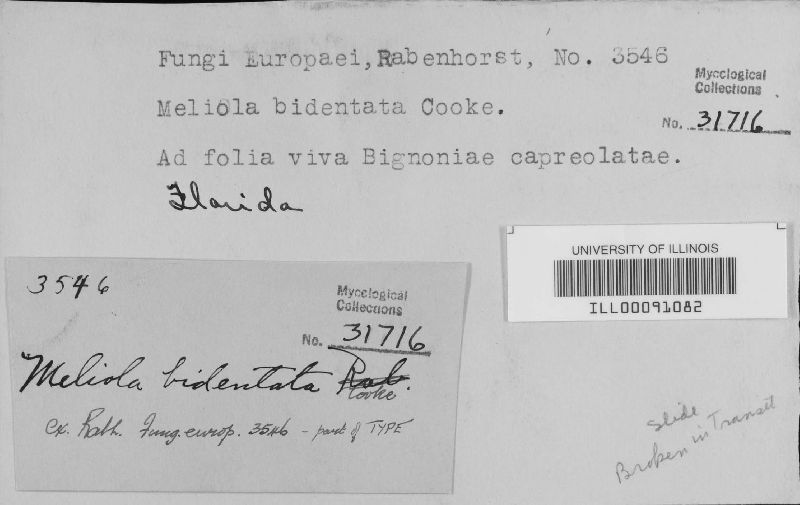 Fungi Europaei, Rabenhorst, No. 3546
Mycological
Collections
No. 31716
Meliola bidentata Cooke.
Ad folia viva Bignoniae capreolatae.
Florida
UNIVERSITY OF ILLINOIS
ILL00091082
3546
Mycological
Collections
No. 31716
Meliola bidentata Rab.
Cooke
ex. Rabh. Fung. europ. 3546 - part of TYPE
Slide
Broken in Transit